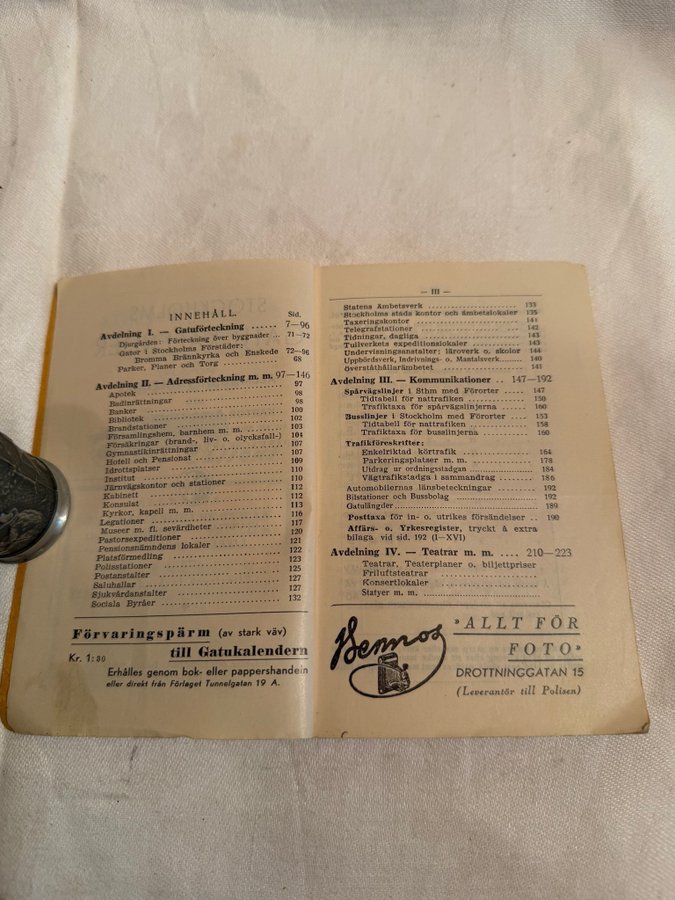 INNEHÅLL.
Sid.
Avdelning I. — Gatuförteckning ...... 7—96
Djurgården: Förteckning över byggnader ... 71—72
Gator i Stockholms Förstäder:
Bromma Brännkyrka och Enskede 72—96
Parker, Planer och Torg ............ 68
Avdelning II. — Adressförteckning m. m. 97—146
Apotek ............ 97
Badinrättningar ............ 98
Banker ............ 98
Bibliotek ............ 100
Brandstationer ............ 102
Församlingshem, barnhem m. m. ............ 103
Försäkringar (brand-, liv- o. olycksfall-) 104
Gymnastikinrättningar ............ 107
Hotell och Pensionat ............ 107
Idrottsplatser ............ 109
Institut ............ 110
Järnvägskontor och stationer ............ 110
Kabinett ............ 112
Konsulat ............ 112
Kyrkor, kapell m. m. ............ 113
Legationer ............ 116
Museer m. fl. sevärdheter ............ 117
Pastorsexpeditioner ............ 120
Pensionsnämndens lokaler ............ 121
Platsförmedling ............ 122
Polisstationer ............ 123
Postanstalter ............ 125
Saluhallar ............ 127
Sjukvårdanstalter ............ 127
Sociala Byråer ............ 132
Förvaringspärm (av stark väv)
Kr. 1:30 till Gatukalendern
Erhålles genom bok- eller pappershandeln
eller direkt från Förlaget Tunnelgatan 19 A.
— III —
Statens Ämbetsverk ............ 133
Stockholms stads kontor och ämbetslokaler 135
Taxeringskontor ............ 141
Telegrafstationer ............ 142
Tidningar, dagliga ............ 143
Tullverkets expeditionslokaler ............ 143
Undervisningsanstalter; läroverk o. skolor 144
Uppbördsverk, Indrivnings- o. Mantalsverk ....... 140
Överståthållarämbetet ............ 141
Avdelning III. — Kommunikationer .. 147—192
Spårvägslinjer i Sthm med Förorter ...... 147
Tidtabell för nattrafiken ............ 150
Trafiktaxa för spårvägslinjerna ............ 160
Busslinjer i Stockholm med Förorter ...... 153
Tidtabell för nattrafiken ............ 158
Trafiktaxa för busslinjerna ............ 160
Trafikföreskrifter:
Enkelriktad körtrafik ............ 164
Parkeringsplatser m. m. ............ 178
Utdrag ur ordningsstadgan ............ 184
Vägtrafikstadga i sammandrag ........ 186
Automobilernas länsbeteckningar ............ 192
Bilstationer och Bussbolag ............ 192
Gatulängder ............ 189
Posttaxa för in- o. utrikes försändelser .. 190
Affärs- o. Yrkesregister, tryckt å extra
bilaga vid sid. 192 (I—XVI)
Avdelning IV. — Teatrar m. m. .... 210—223
Teatrar, Teaterplaner o. biljettpriser
Friluftsteatrar ............
Konsertlokaler ............
Statyer m. m. ............
Hennos
»ALLT FÖR
FOTO»
DROTTNINGGATAN 15
(Leverantör till Polisen)